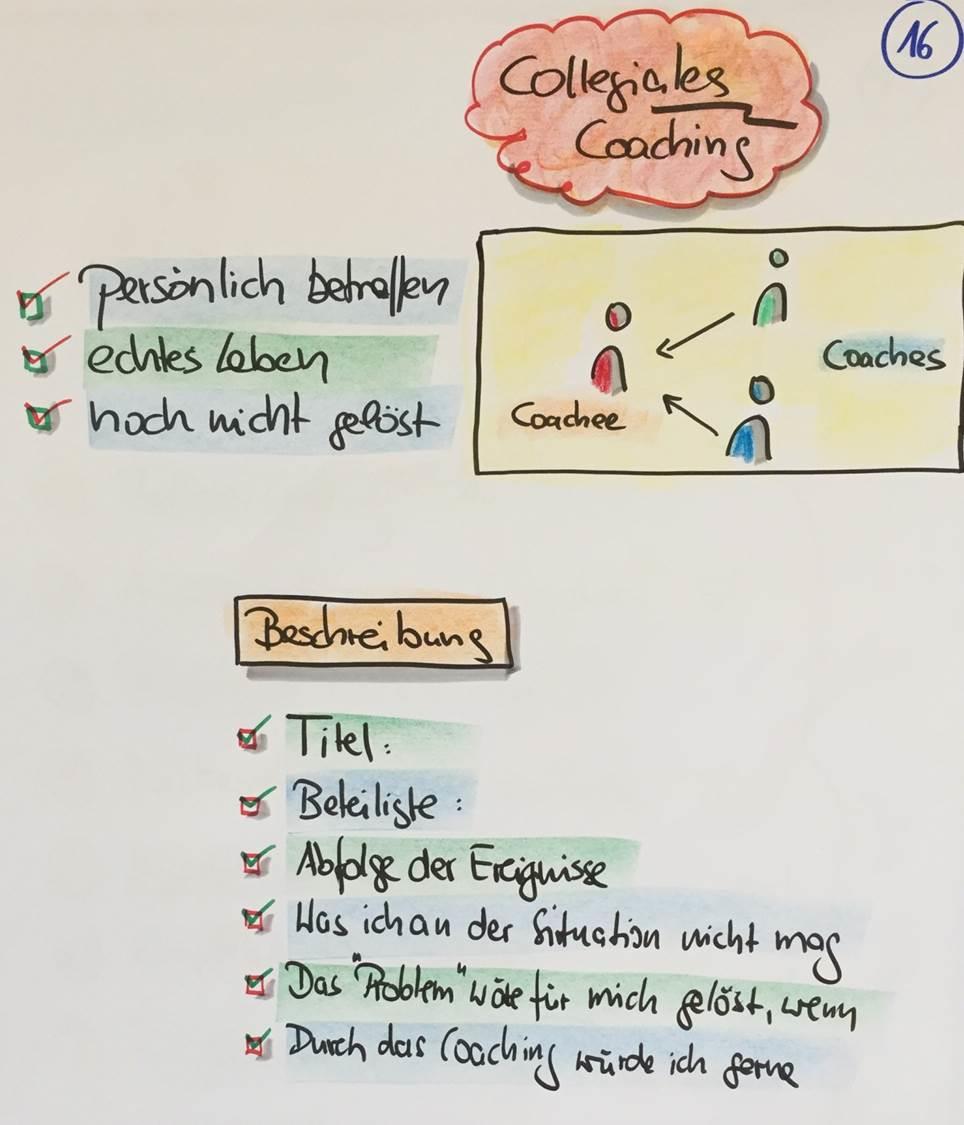 16
Collegiales
Coaching
persönlich betroffen
echtes Leben
noch nicht gelöst
Coaches
Coachee
Beschreibung
Titel:
Beteiligte:
Abfolge der Ereignisse
Was ich an der Situation nicht mag
Das "Problem" wäre für mich gelöst, wenn
Durch das Coaching würde ich gerne